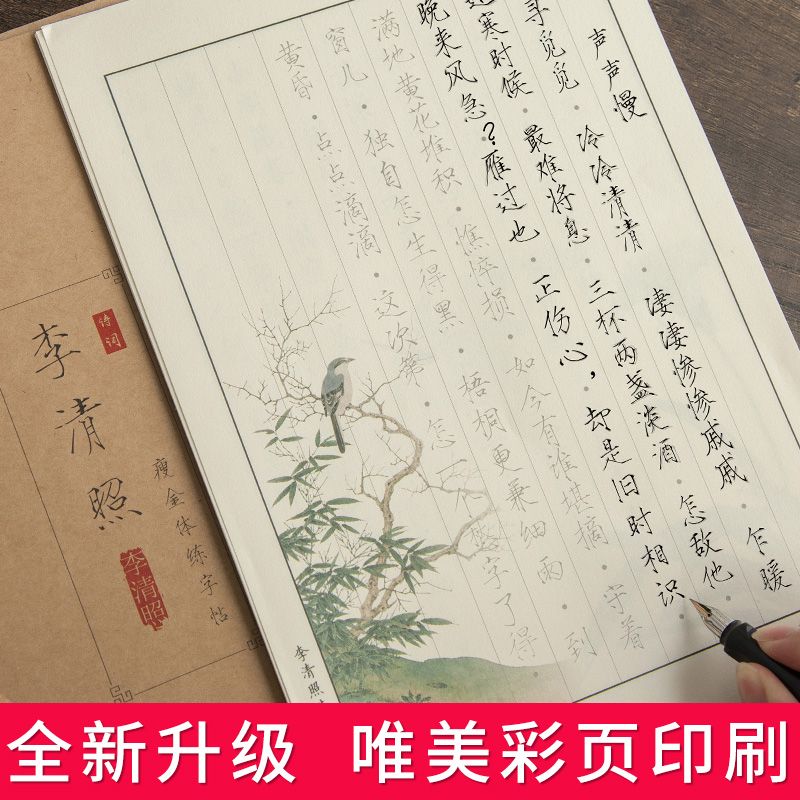 声声慢
寻觅觅·冷冷清清·凄凄惨惨戚戚·乍暖
还寒时候·最难将息·三杯两盏淡酒·怎敌他
晚来风急?雁过也·正伤心,却是旧时相识
满地黄花堆积·憔悴损·如今有谁堪摘·守着
窗儿·独自怎生得黑·梧桐更兼细雨·到
黄昏·点点滴滴·这次第·怎一个愁字了得
李清照
诗词
李清照
瘦金体练字帖
李清照
全新升级 唯美彩页印刷